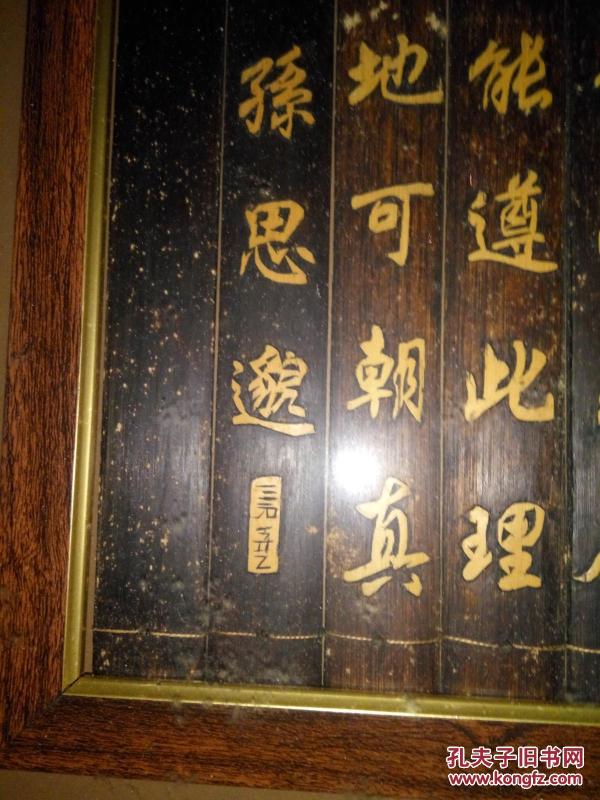 能遵此理
地可朝真
孫思邈
孔夫子旧书网
www.kongfz.com